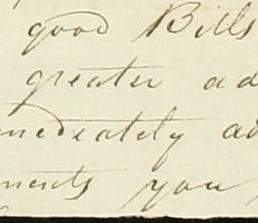 good Bills
greater ad
mediately ad
ments you